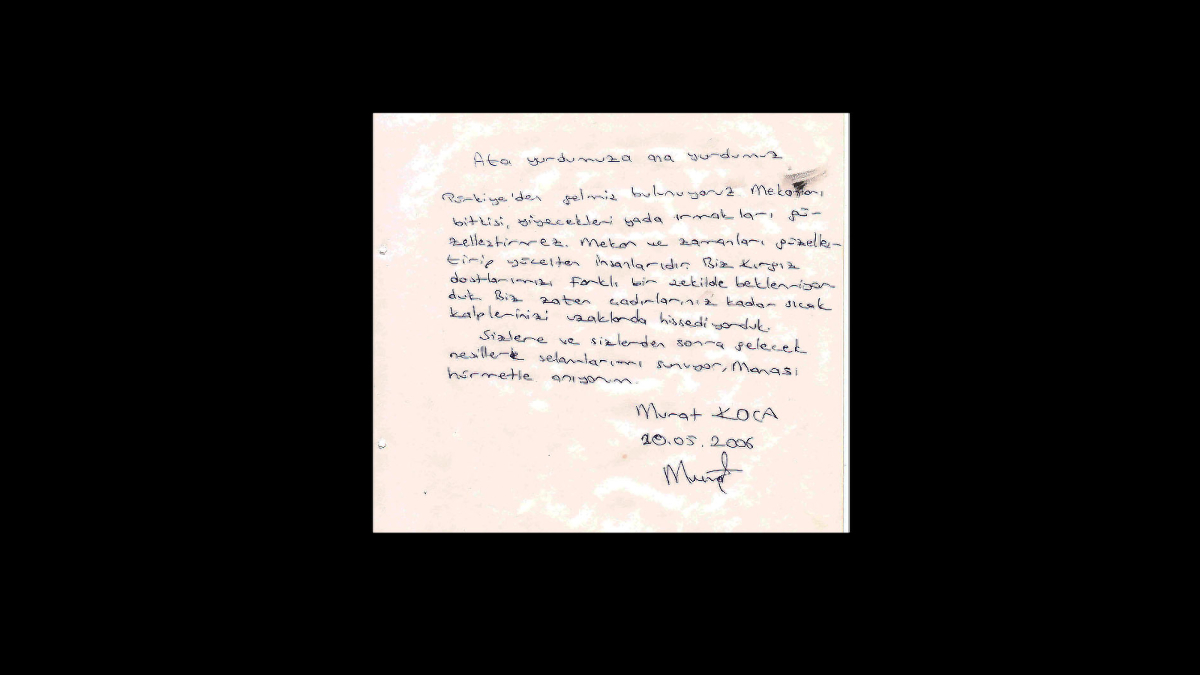 Ata yurdumuza ana yurdumuz
Türkiye'den gelmiş bulunuyoruz Mekanları,
bitkisi, yiyecekleri yada ırmakları gü-
zelleştirmez. Mekan ve zamanları güzelleş-
tirip yücelten insanlarıdır. Biz Kırgız
dostlarımızı farklı bir şekilde beklemiyor
duk Biz zaten çadırlarınız kadar sıcak
kalplerinizi uzaklarda hissediyorduk.
Sizlere ve sizlerden sonra gelecek
nesillere selamlarımı sunuyor, Manası
hürmetle anıyorum.
Murat KOCA
20.05.2006
Murat